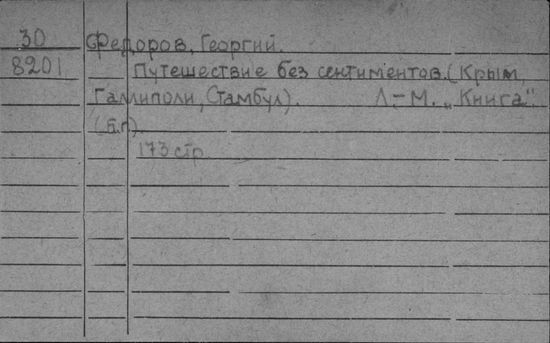 30 Федоров, Георгий.
8201 Путешествие без сентиментов. (Крым,
Галлиполи, Стамбул). Л.-М. "Книга"
(б.г.)
173 стр.